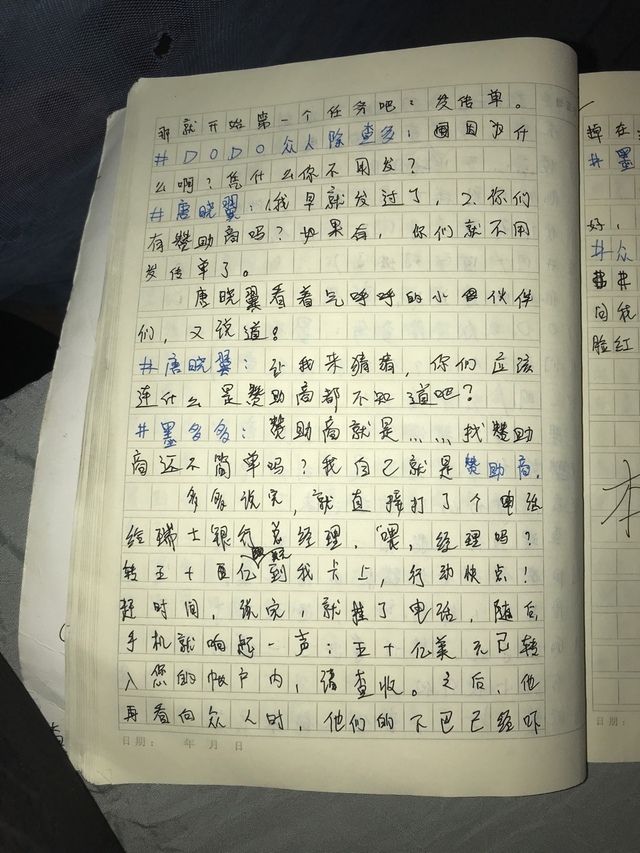 那就开始第一个任务吧：发传单。
#DODO众人除查多：囿因为什
么啊？凭什么你不用发？
#唐晓翼：（我早就发过了，又你们
有赞助商吗？如果有，你们就不用
发传单了。
唐晓翼看着气呼呼的小伙伴
们，又说道：
#唐晓翼：让我来猜猜，你们应该
连什么是赞助商都不知道吧？
#墨多多：赞助商就是……找赞助
商还不简单吗？我自己就是赞助商。
多多说完，就直接打了个电话
给瑞士银行总经理，“喂，经理吗？
转五十亿到我卡上，行动快点！
赶时间，说完，就挂了电话，随后
手机就响起一声：五十亿美元已转
入您的帐户内，请查收。之后，他
再看向众人时，他们的下巴已经吓
日期： 年 月 日
掉在
#墨
好，
#众
弗弗
问我
脸红
日期：